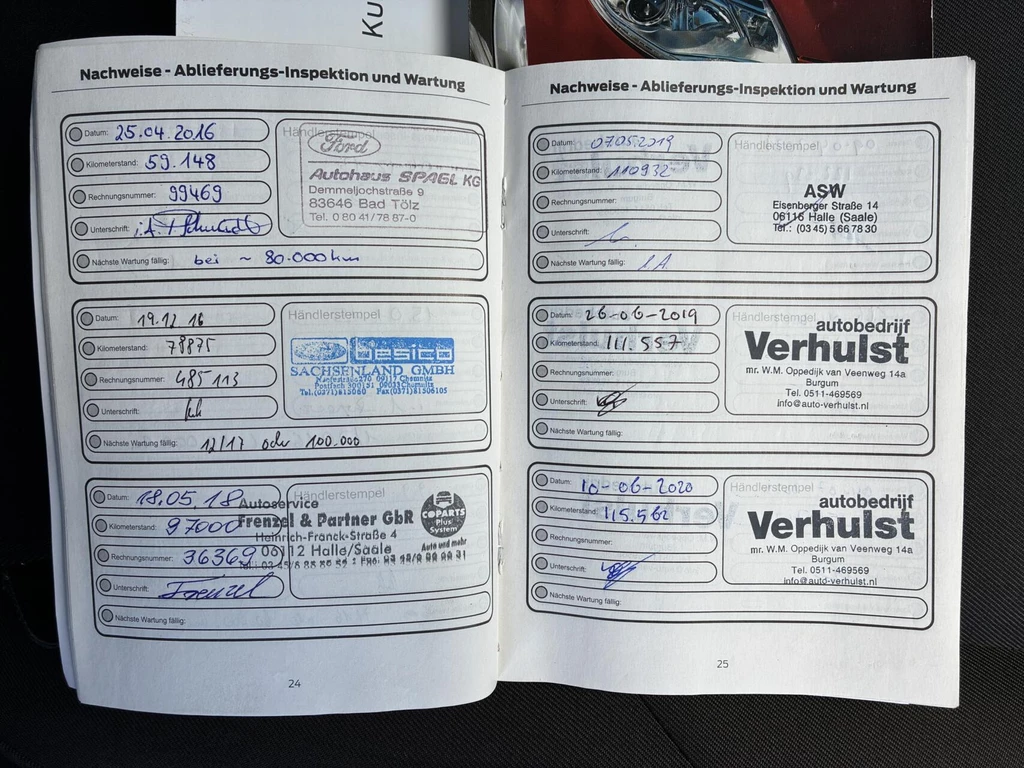 Ku
Nachweise - Ablieferungs-Inspektion und Wartung
Datum: 25.04.2016
Kilometerstand: 59.148
Rechnungsnummer: 99469
Unterschrift:
Nächste Wartung fällig: bei ~ 80.000 km
Händlerstempel
Ford
Autohaus SPAGL KG
Demmeljochstraße 9
83646 Bad Tölz
Tel. 0 80 41/78 87-0
Datum: 19.12.16
Kilometerstand: 78875
Rechnungsnummer: 485113
Unterschrift:
Nächste Wartung fällig: 12/17 oder 100.000
Händlerstempel
besico
SACHSENLAND GMBH
09117 Chemnitz
Postfach 300151 09033 Chemnitz
Tel.(0371)815060 Fax(0371)81506105
Datum: 18.05.18
Kilometerstand: 97000
Rechnungsnummer: 36369
Unterschrift: Frenzel
Nächste Wartung fällig:
Händlerstempel
Autoservice
Frenzel & Partner GbR
Heinrich-Franck-Straße 4
06112 Halle/Saale
COPARTS
Plus
System
Auto und mehr
24
Nachweise - Ablieferungs-Inspektion und Wartung
Datum: 07.05.2019
Kilometerstand: 110932
Rechnungsnummer:
Unterschrift:
Nächste Wartung fällig:
Händlerstempel
ASW
Eisenberger Straße 14
06116 Halle (Saale)
Tel.: (03 45) 5 66 78 30
Datum: 26-06-2019
Kilometerstand: 111.557
Rechnungsnummer:
Unterschrift:
Nächste Wartung fällig:
Händlerstempel
autobedrijf
Verhulst
mr. W.M. Oppedijk van Veenweg 14a
Burgum
Tel. 0511-469569
info@auto-verhulst.nl
Datum: 10-06-2020
Kilometerstand: 115.562
Rechnungsnummer:
Unterschrift:
Nächste Wartung fällig:
Händlerstempel
autobedrijf
Verhulst
mr. W.M. Oppedijk van Veenweg 14a
Burgum
Tel. 0511-469569
info@auto-verhulst.nl
25